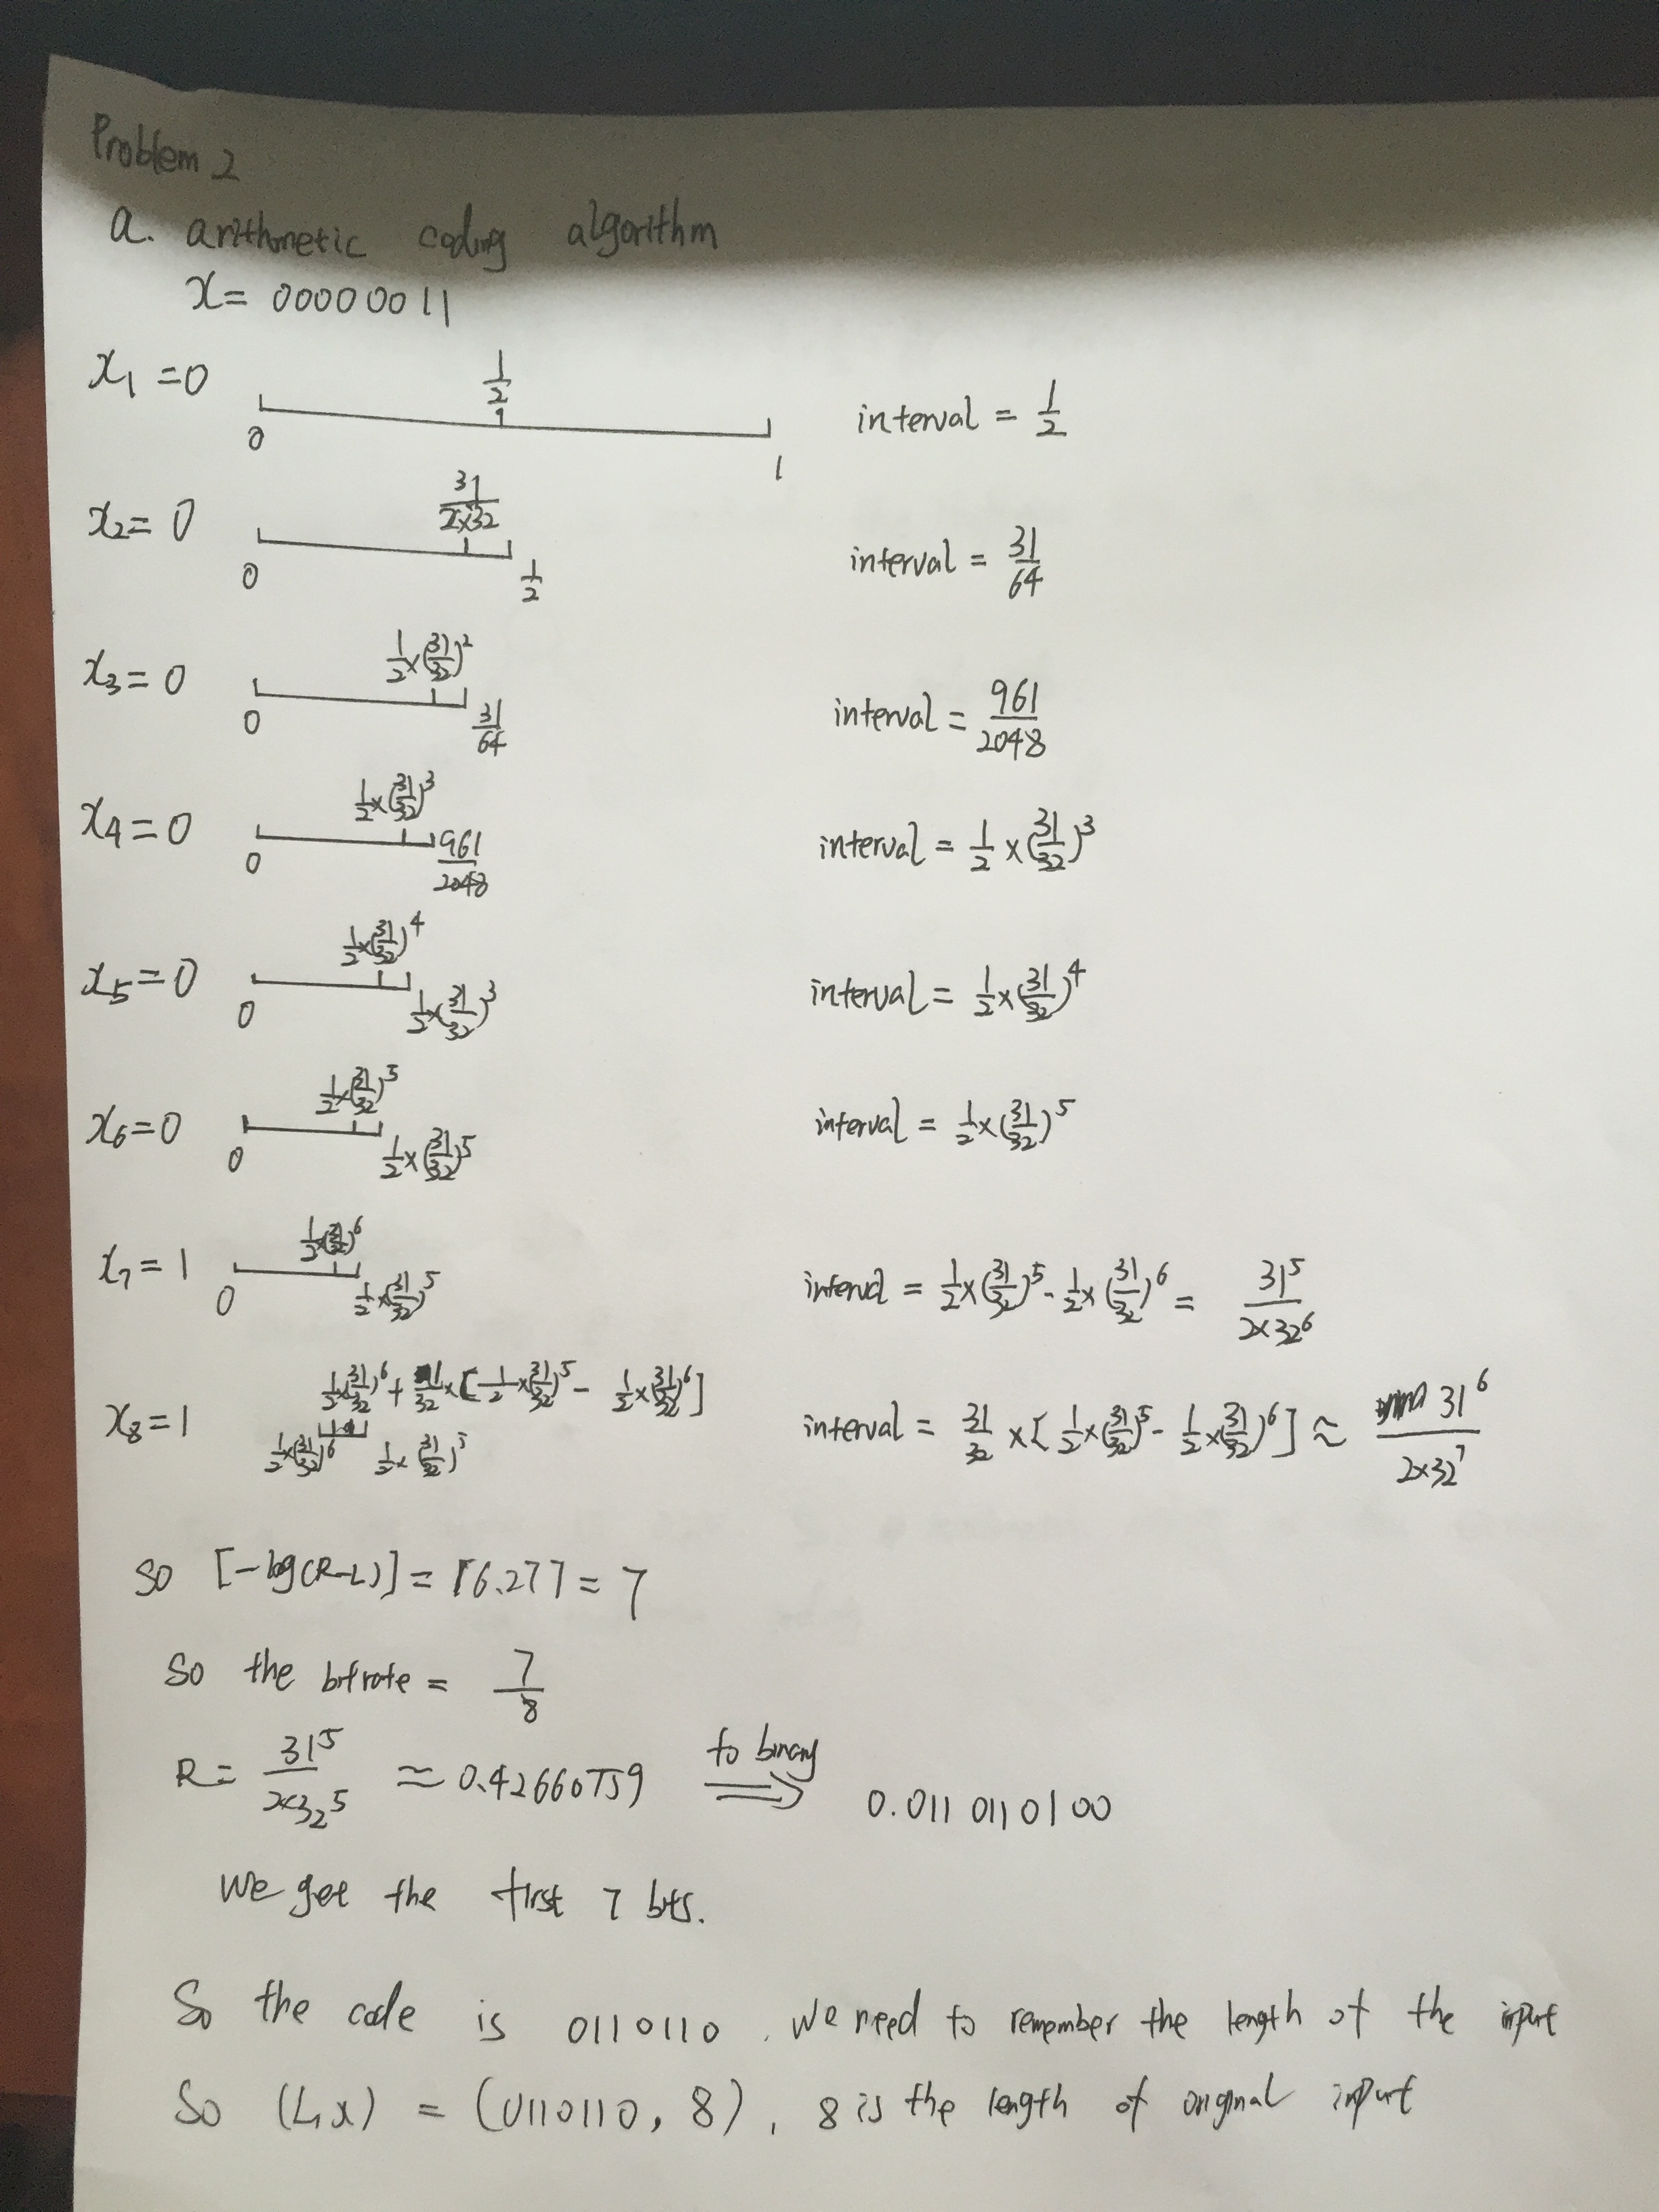 Problem 2
a. arithmetic coding algorithm
x = 00000011
x₁ = 0 0 1/2 1 interval = 1/2
x₂ = 0 0 31/(2×32) 1/2 interval = 31/64
x₃ = 0 0 1/2×(31/32)² 31/64 interval = 961/2048
x₄ = 0 0 1/2×(31/32)³ 961/2048 interval = 1/2×(31/32)³
x₅ = 0 0 1/2×(31/32)⁴ 1/2×(31/32)³ interval = 1/2×(31/32)⁴
x₆ = 0 0 1/2×(31/32)⁵ 1/2×(31/32)⁵ interval = 1/2×(31/32)⁵
x₇ = 1 0 1/2×(31/32)⁶ 1/2×(31/32)⁵ interval = 1/2×(31/32)⁵ - 1/2×(31/32)⁶ = 31⁵/(2×32⁶)
x₈ = 1 1/2×(31/32)⁶ + 1/32×[1/2×(31/32)⁵ - 1/2×(31/32)⁶] 1/2×(31/32)⁶ 1/2×(31/32)⁵ interval = 31/32×[1/2×(31/32)⁵ - 1/2×(31/32)⁶] ≈ 31⁶/(2×32⁷)
So [-log(R-L)] = ⌈6.27⌉ = 7
So the bitrate = 7/8
R = 31⁵/(2×32⁵) ≈ 0.42660759 to binary ⟹ 0.0110110100
We get the first 7 bits.
So the code is 0110110. We need to remember the length of the input
So (L, x) = (0110110, 8), 8 is the length of original input